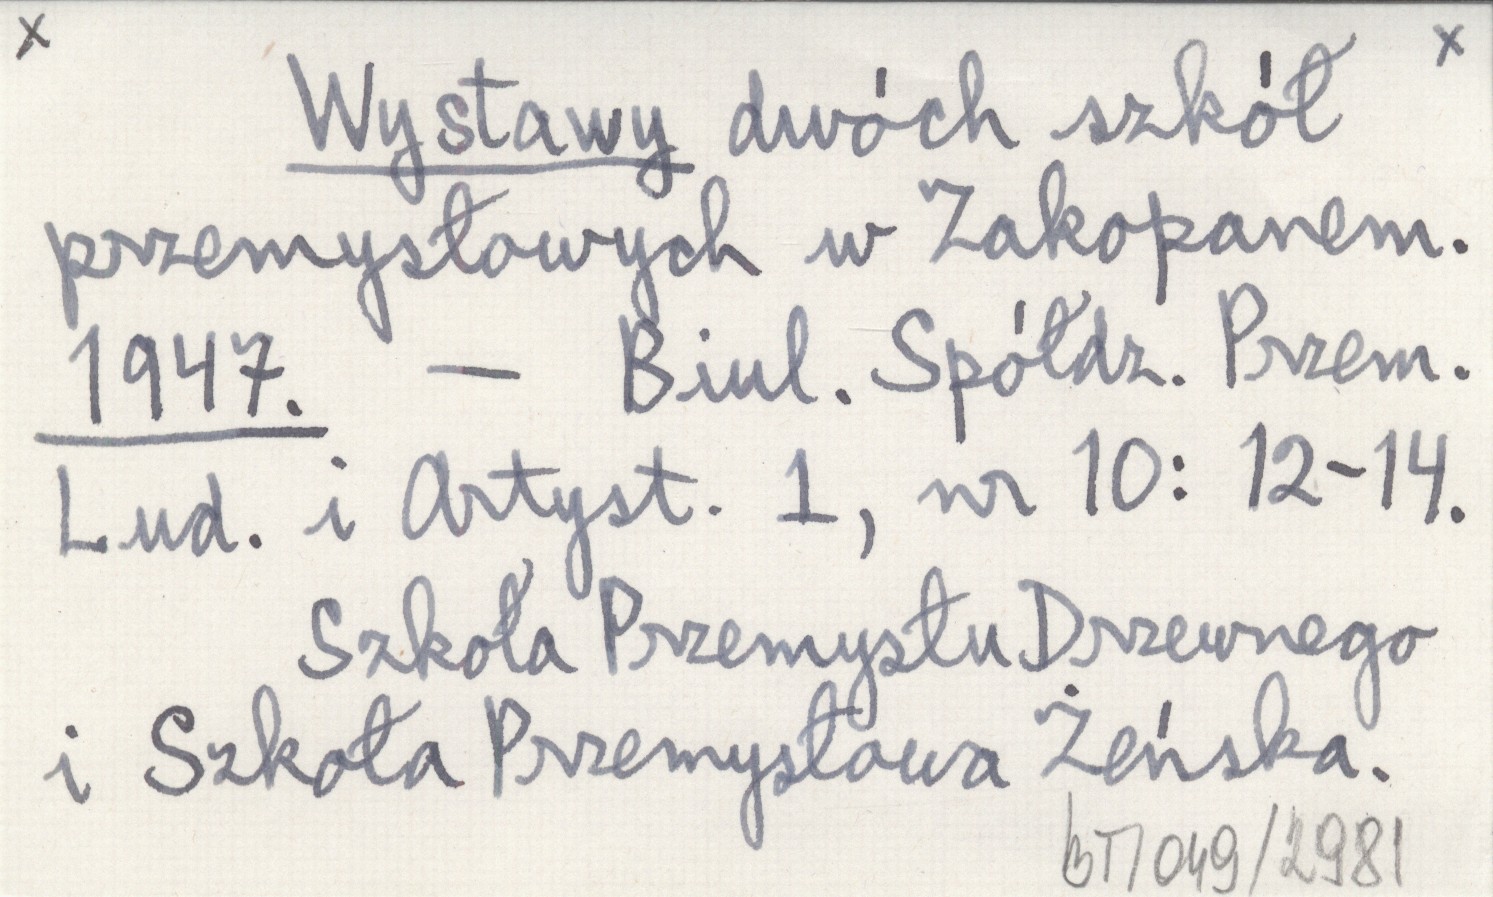 x x
Wystawy dwóch szkół
przemysłowych w Zakopanem.
1947. — Biul. Spółdz. Przem.
Lud. i Artyst. 1, nr 10: 12-14.
Szkoła Przemysłu Drzewnego
i Szkoła Przemysłowa Żeńska.
BT/049/2981